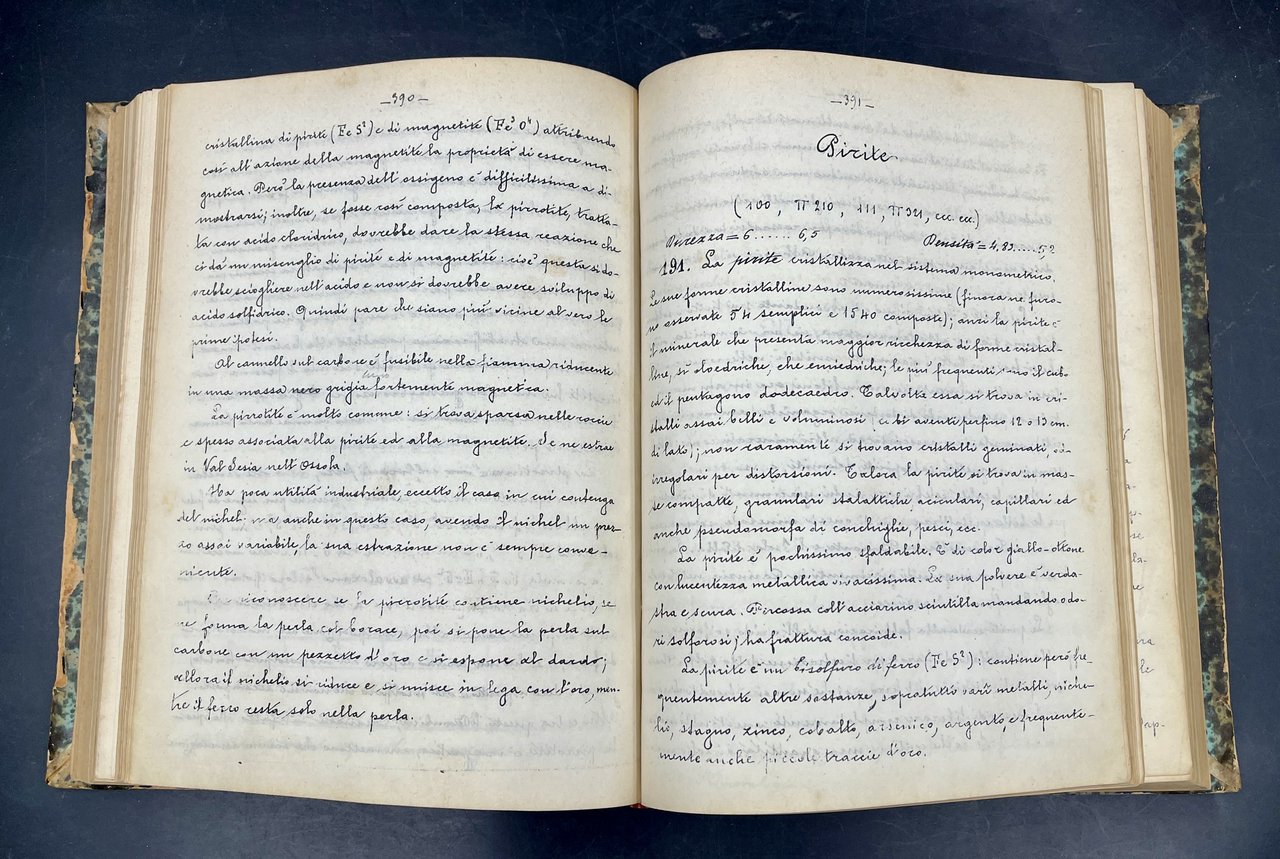 —390—
cristallina di pirite (Fe S²) e di magnetite (Fe³ O⁴) attribuendo
così all'azione della magnetite la proprietà di essere ma-
gnetica. Però la presenza dell'ossigeno è difficilissima a di-
mostrarsi; inoltre, se fosse così composta, la pirrotite, tratta-
ta con acido cloridrico, dovrebbe dare la stessa reazione che
ci dà un miscuglio di pirite e di magnetite: cioè questa si do-
vrebbe sciogliere nell'acido e non si dovrebbe avere sviluppo di
acido solfidrico. Quindi pare che siano più vicine al vero le
prime ipotesi.
Al cannello sul carbone è fusibile nella fiamma riducente
in una massa nero grigia fortemente magnetica.
La pirrotite è molto comune: si trova sparsa nelle roccie
e spesso associata alla pirite ed alla magnetite. Se ne estrae
in Val Sesia nell'Ossola.
Ha poca utilità industriale, eccetto il caso in cui contenga
del nichel: ma anche in questo caso, avendo il nichel un prez-
zo assai variabile, la sua estrazione non è sempre conve-
niente.
riconoscere se la pirrotite contiene nichelio, se
ne forma la perla col borace, poi si pone la perla sul
carbone con un pezzetto d'oro e si espone al dardo;
allora il nichelio si riduce e si unisce in lega con l'oro, men-
tre il ferro resta solo nella perla.
—391—
Pirite.
(100, π 210, 111, π 321, ecc. ecc.)
Durezza = 6......6,5 Densità = 4,83.....5,2
191. La pirite cristallizza nel sistema monometrico.
Le sue forme cristalline sono numerosissime (finora ne furo-
no osservate 54 semplici e 1540 composte); anzi la pirite è
il minerale che presenta maggior ricchezza di forme cristal-
line, sì oloedriche, che emiedriche; le più frequenti sono il cubo
ed il pentagono dodecaedro. Talvolta essa si trova in cri-
stalli assai belli e voluminosi (cubi aventi perfino 12 o 13 cm.
di lato); non raramente si trovano cristalli geminati, od
irregolari per distorsioni. Talora la pirite si trova in mas-
se compatte, granulari stalattiche, aciculari, capillari ed
anche pseudomorfa di conchiglie, pesci, ecc.
La pirite è pochissimo sfaldabile. È di color giallo-ottone
con lucentezza metallica vivacissima. La sua polvere è verda-
stra e scura. Percossa coll'acciarino scintilla mandando odo-
ri solforosi; ha frattura concoide.
La pirite è un bisolfuro di ferro (Fe S²): contiene però fre-
quentemente altre sostanze, sopratutto varî metalli, niche-
lio, stagno, zinco, cobalto, arsenico, argento, e frequente-
mente anche piccole traccie d'oro.